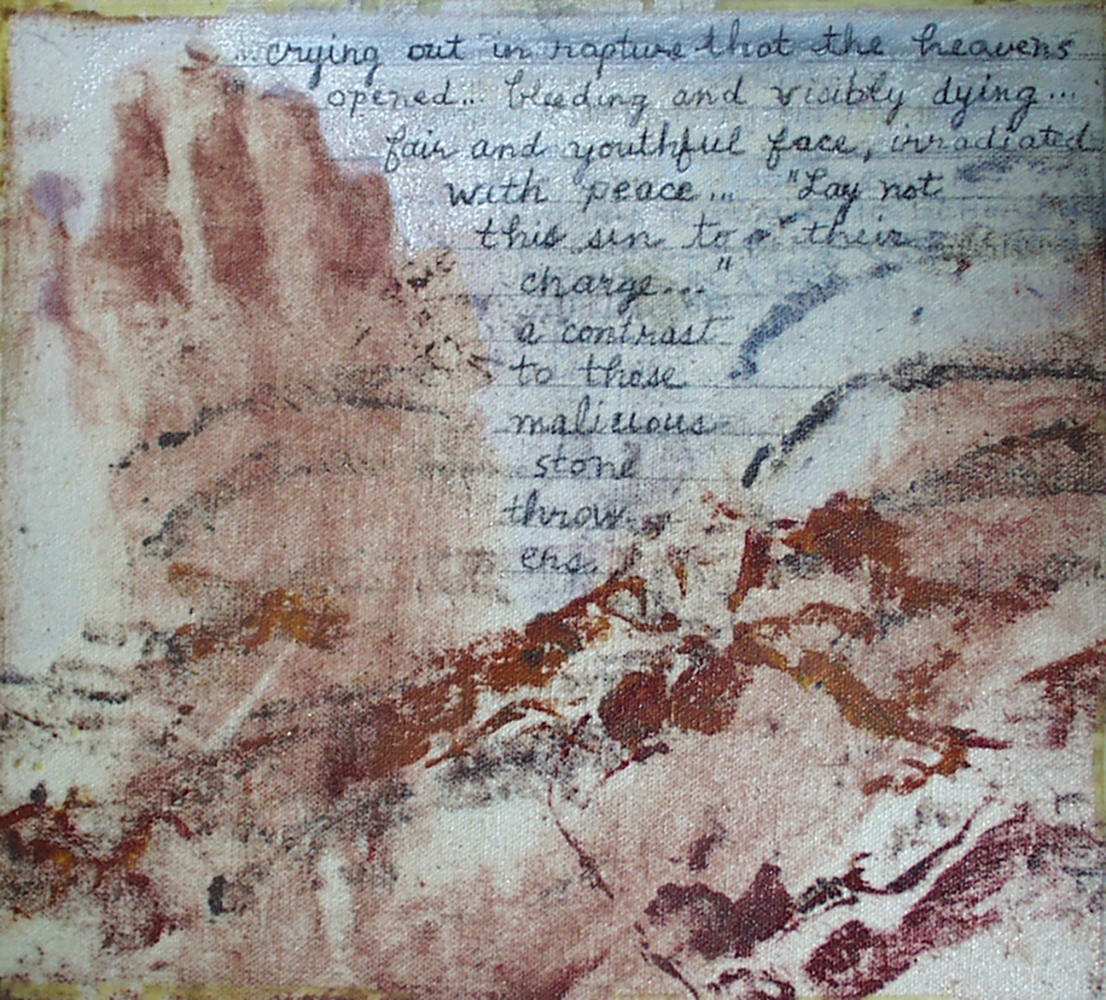 crying out in rapture that the heavens
opened... bleeding and visibly dying...
fair and youthful face, irradiated
with peace... "Lay not
this sin to their
charge..."
a contrast
to those
malicious
stone
throw
ers.